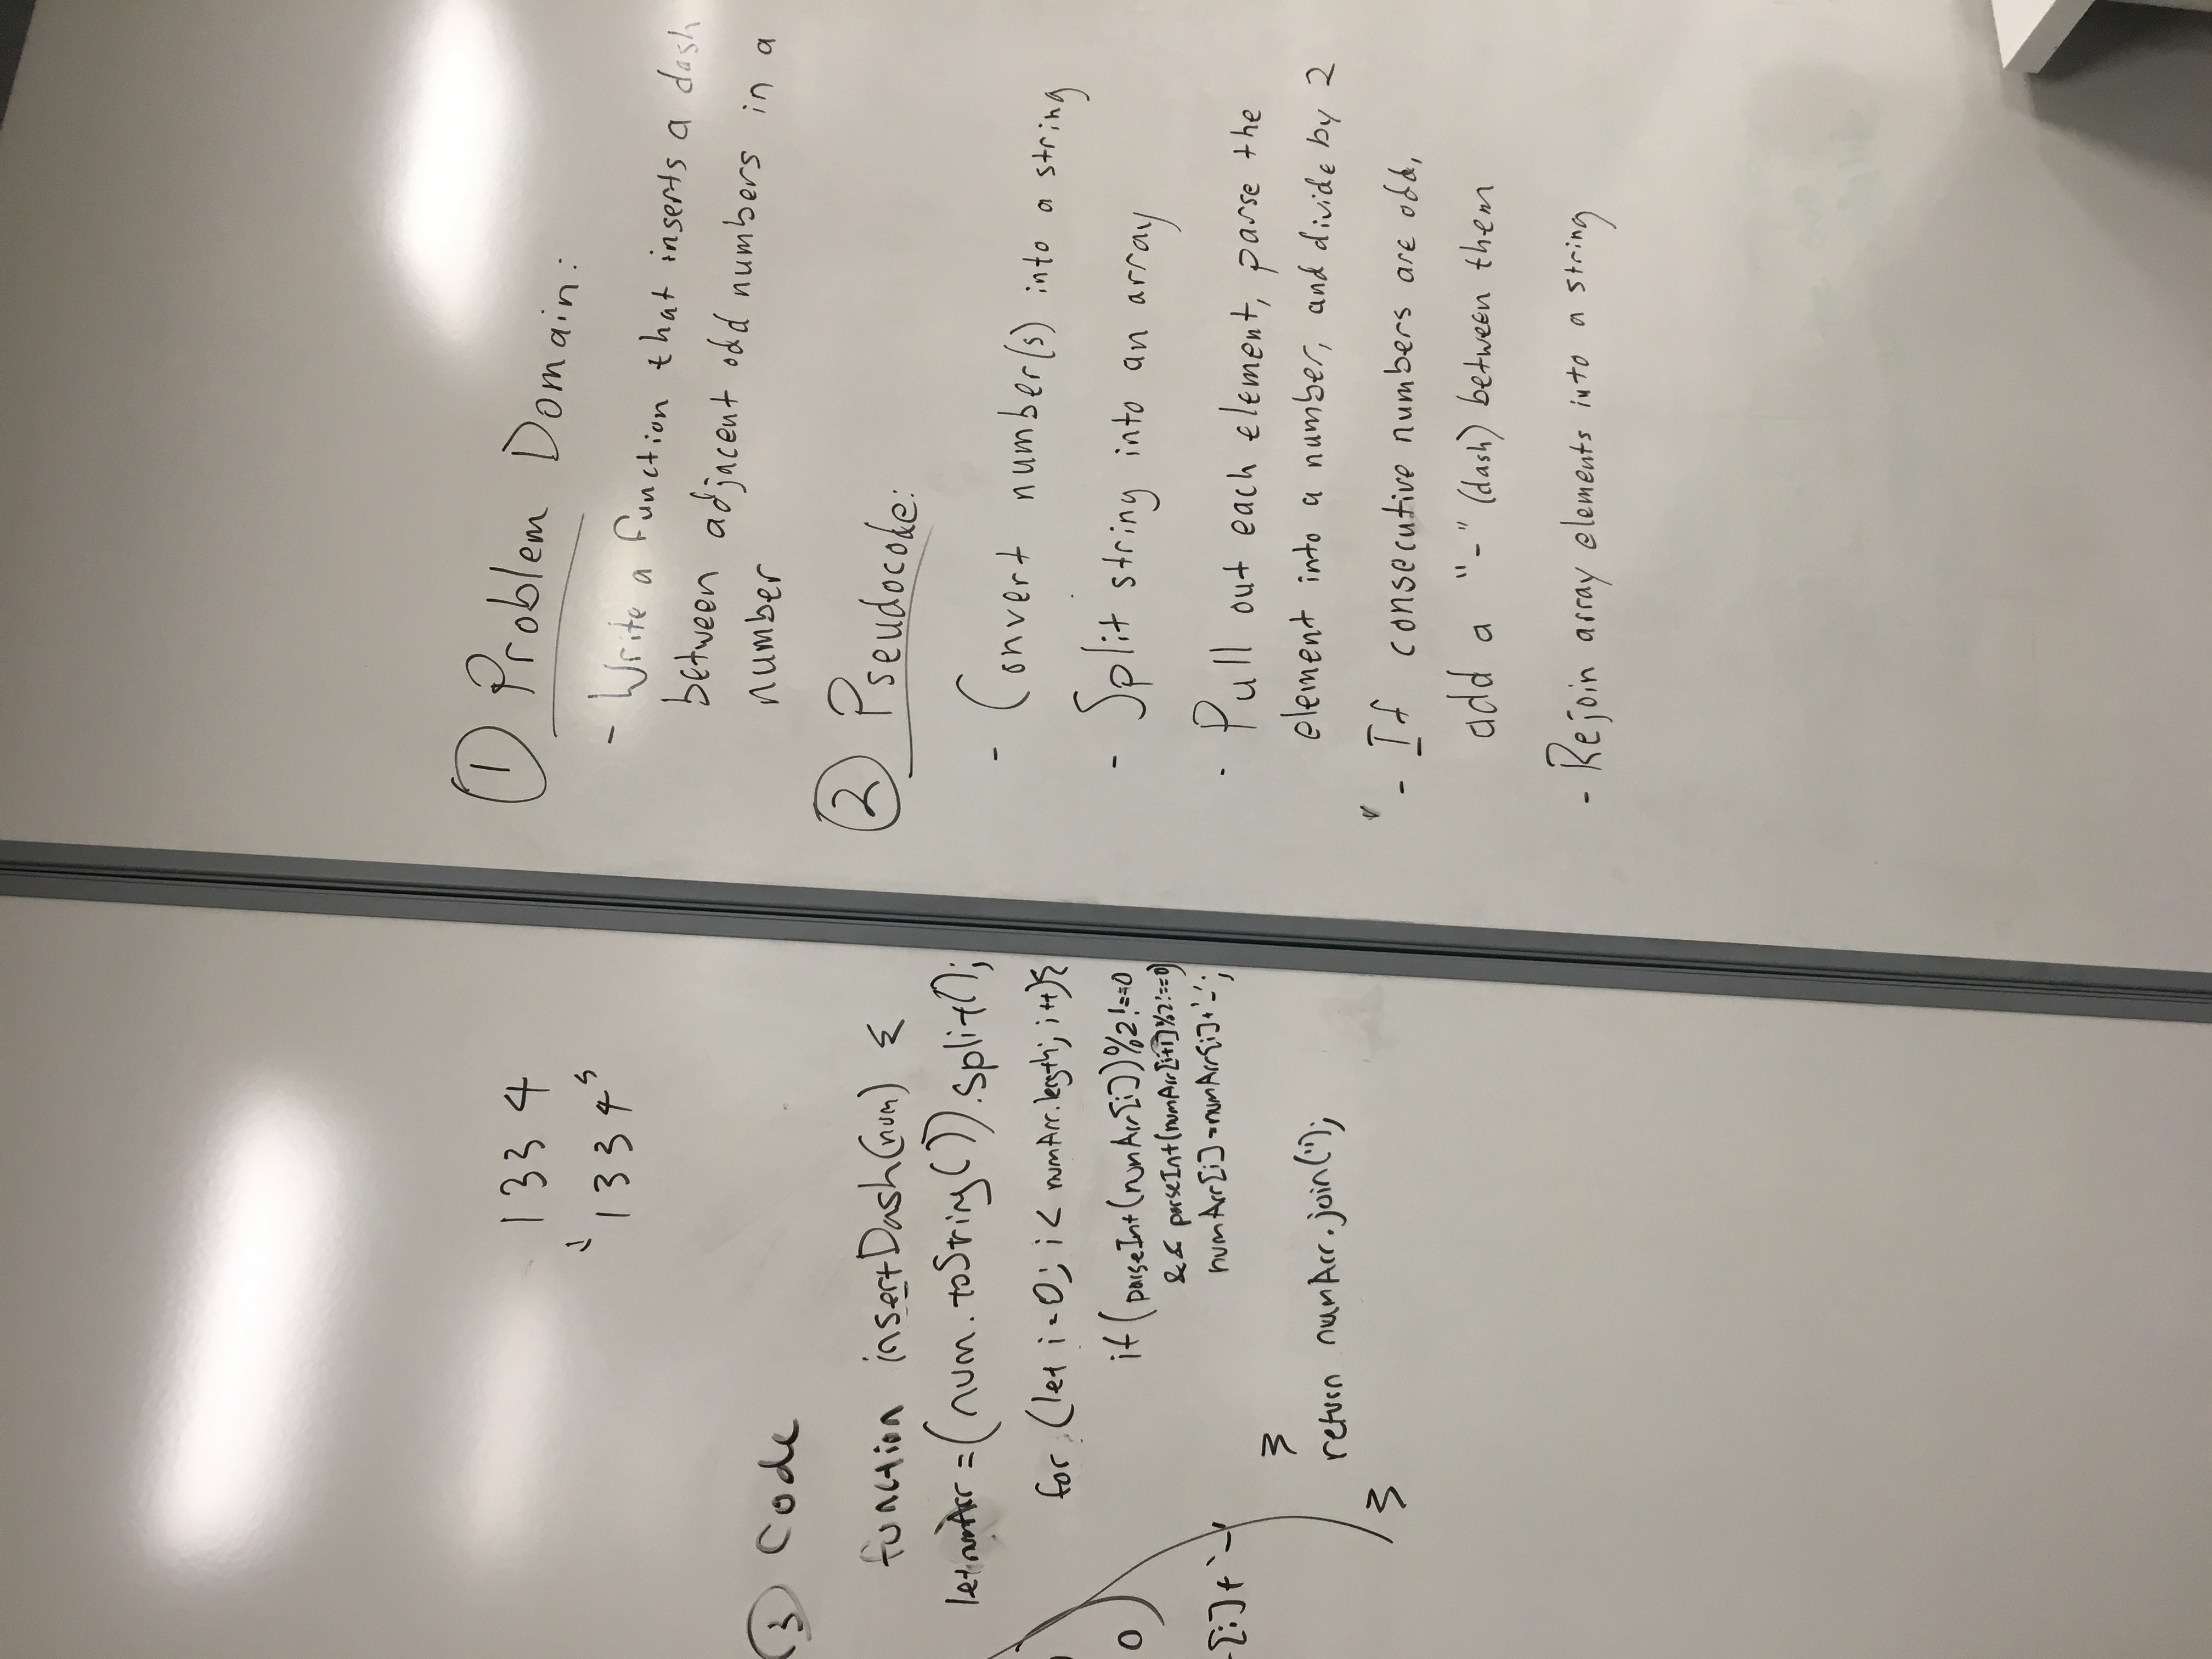 1 3 3 4
'1 3 3 4'
③ Code
function insertDash(num) {
let numArr = (num.toString()).split();
for (let i=0; i < numArr.length; i++){
if (parseInt(numArr[i])%2!==0
&& parseInt(numArr[i+1]%2!==0)
numArr[i]=numArr[i]+'-';
}
return numArr.join('');
}
0)
[i]+'-'
① Problem Domain:
- Write a function that inserts a dash
between adjacent odd numbers in a
number
② Pseudocode:
- Convert number(s) into a string
- Split string into an array
- Pull out each element, parse the
element into a number, and divide by 2
- If consecutive numbers are odd,
add a "-" (dash) between them
- Rejoin array elements into a string